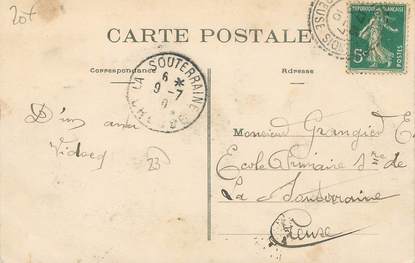 20f
CARTE POSTALE
Correspondance
Adresse
RÉPUBLIQUE FRANÇAISE
5c
POSTES
LA SOUTERRAINE
6 *
9-7
CREUSE
D'un ami
Vidocq
23
Monsieur Grangier E.
Ecole Primaire Sre de
La Souterraine
Creuse